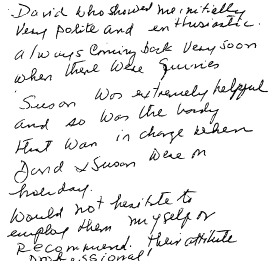 David who showed me initially
very polite and enthusiastic.
always coming back very soon
when there were queries
Susan was extremely helpful
and so was the body
that was in charge when
David & Susan were on
holiday.
Would not hesitate to
employ them myself or
Recommend. Their attitude
professional,